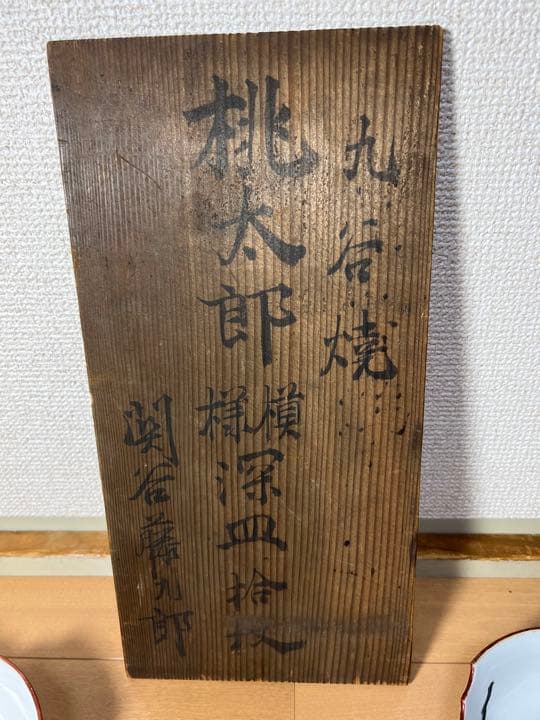 九谷焼
桃太郎模様深皿拾枚
関谷藤九郎